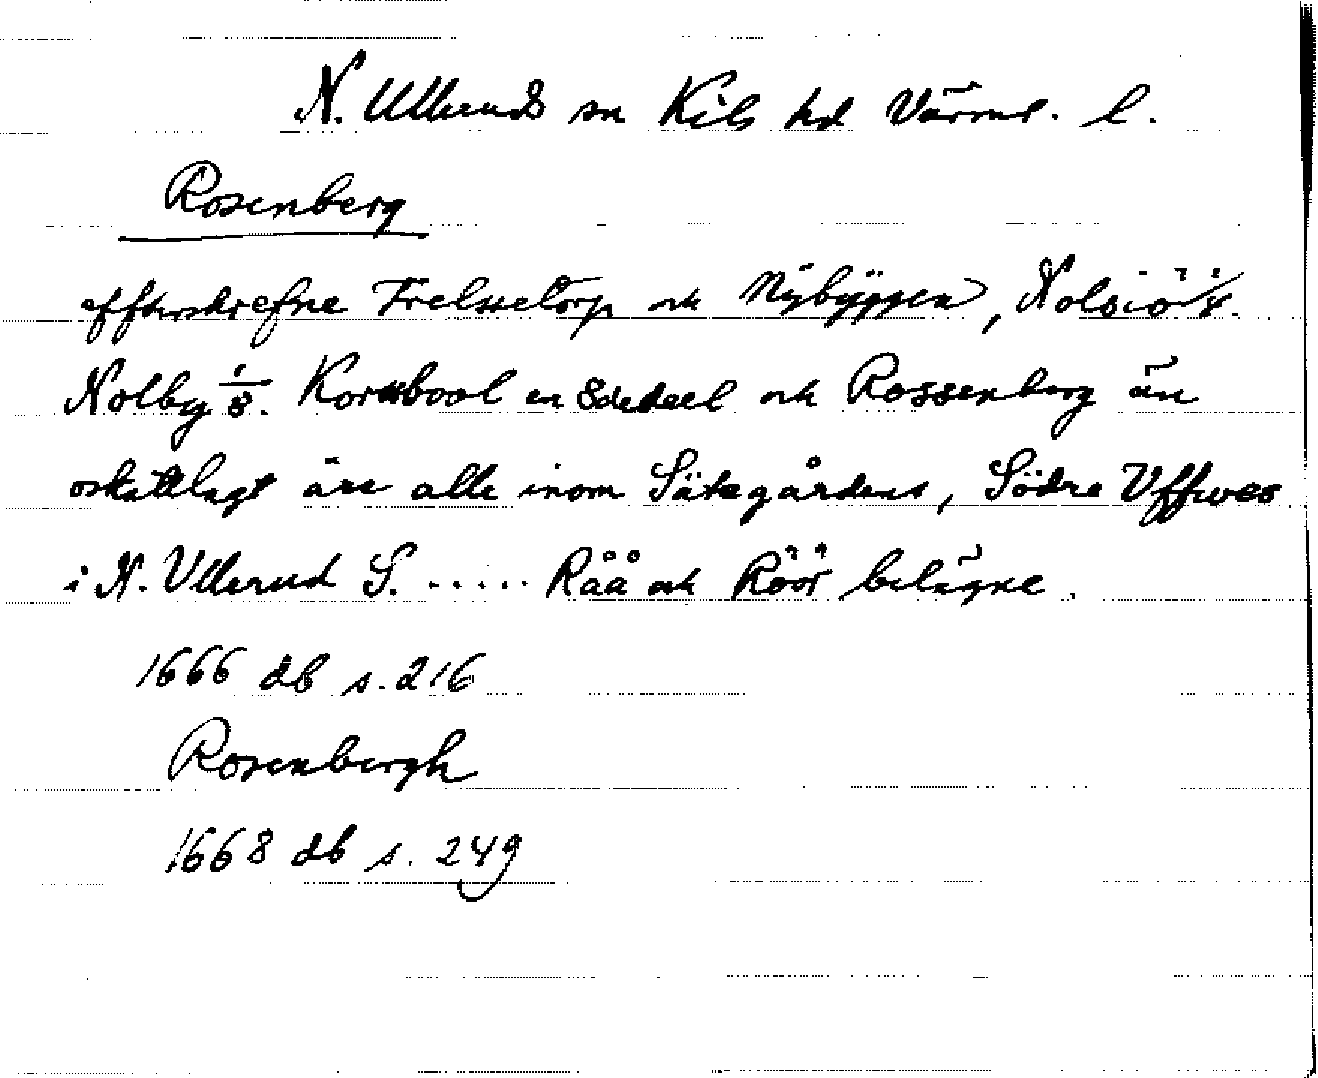 N. Ulleruds sn Kils hd Värml. l.
Rosenberg
effterskrefne Frelssetorp och Nÿbÿggen, Nolsiö 1/8.
Nolby 1/8. Korsbool en 8dedeel och Rossenberg än
oskattlagt äre alle inom Sätegårdens, Södre Uffweo
i N. Ullerud S. ..... Råå och Röör belägne.
1666 db s. 216
Rosenbergh
1668 db s. 249